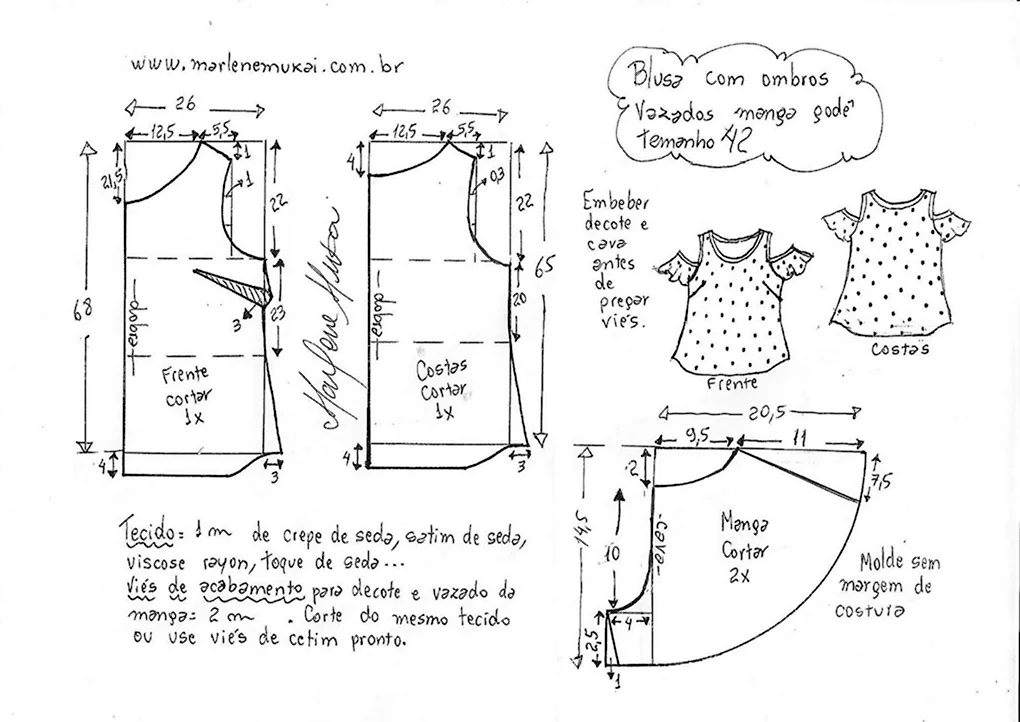 www.marlenemukai.com.br
Blusa com ombros
Vazados "manga godê"
Temanho 42
26
12,5
5,5
1
21,5
1
22
68
dobra
3
23
Frente
cortar
1x
4
3
Marlene Mukai
26
12,5
5,5
4
1
0,3
22
65
dobra
20
Costas
Cortar
1x
4
3
Embeber
decote e
cava
antes
de
pregar
viés.
Frente
Costas
20,5
9,5
11
2
7,5
14,5
cava
10
Manga
Cortar
2x
4
2,5
1
Molde sem
margem de
costura
Tecido= 1m de crepe de seda, satim de seda,
viscose rayon, toque de seda...
Viés de acabamento para decote e vazado da
manga= 2m . Corte do mesmo tecido
ou use viés de cetim pronto.